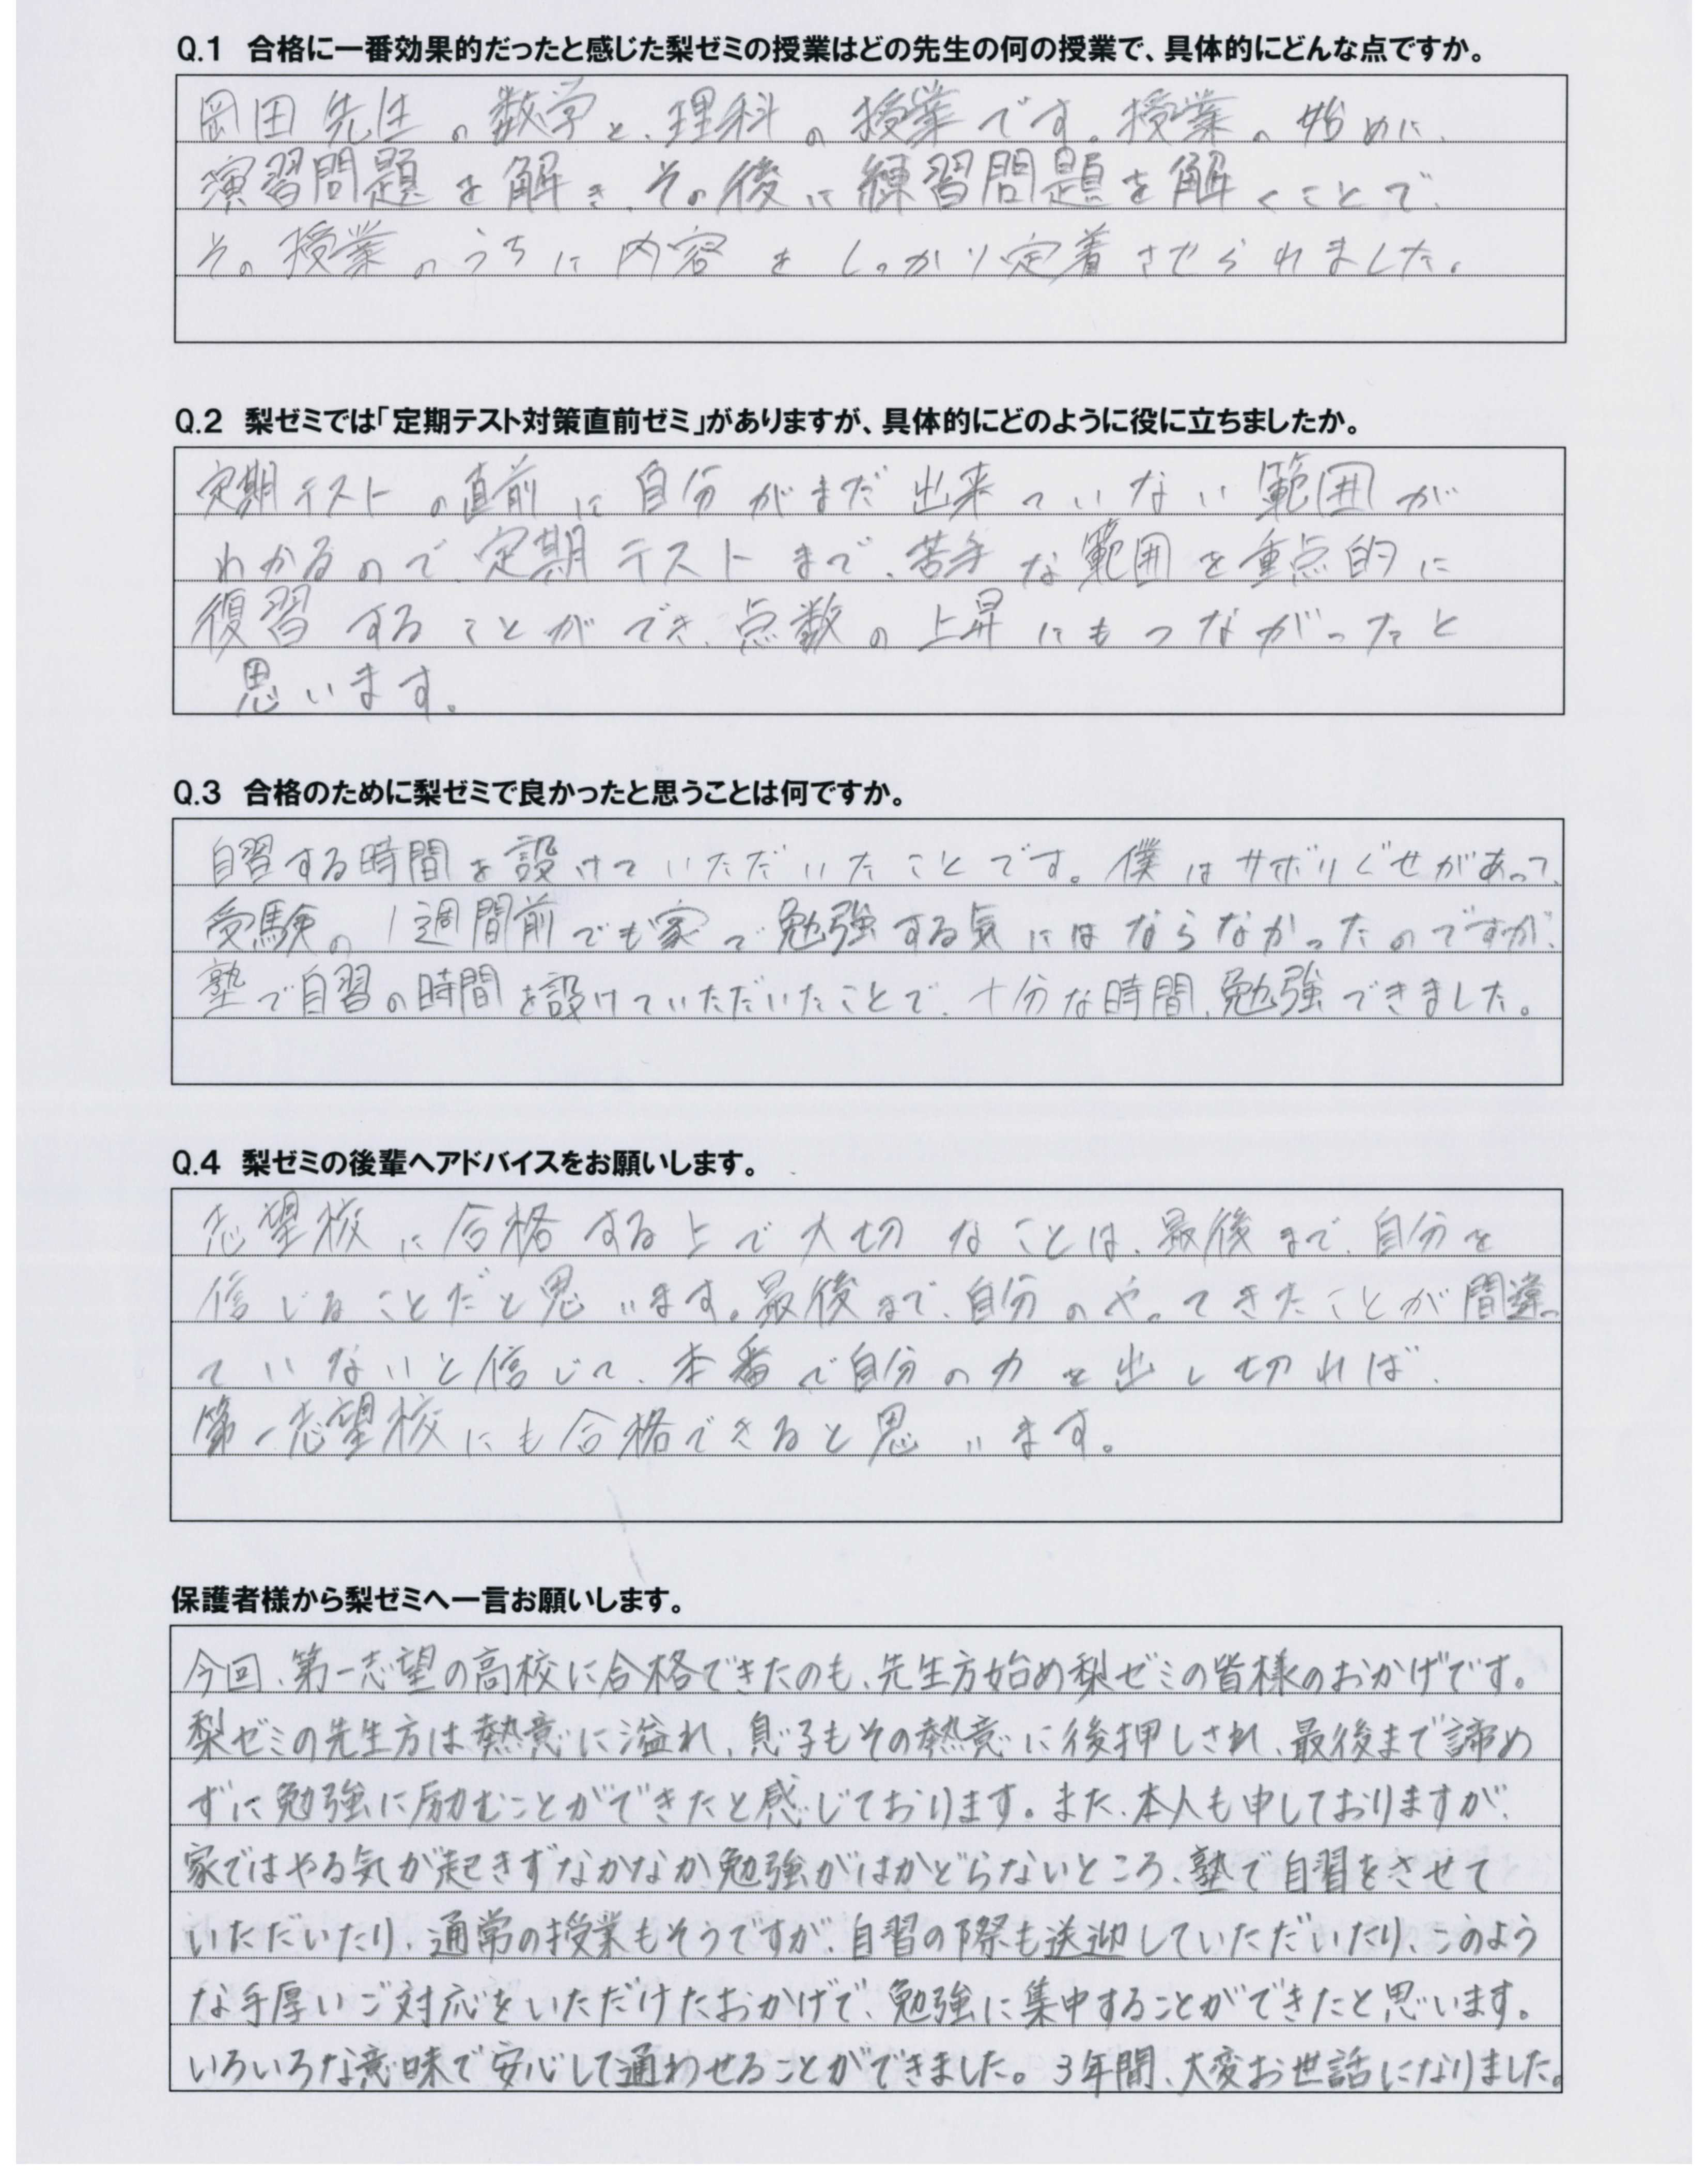 Q.1 合格に一番効果的だったと感じた梨ゼミの授業はどの先生の何の授業で、具体的にどんな点ですか。
岡田先生の数学と、理科の授業です。授業の始めに、
演習問題を解き、その後に練習問題を解くことで、
その授業のうちに内容をしっかり定着させられました。
Q.2 梨ゼミでは「定期テスト対策直前ゼミ」がありますが、具体的にどのように役に立ちましたか。
定期テストの直前に自分がまだ出来ていない範囲が
わかるので、定期テストまで、苦手な範囲を重点的に
復習することができ、点数の上昇にもつながったと
思います。
Q.3 合格のために梨ゼミで良かったと思うことは何ですか。
自習する時間を設けていただいたことです。僕はサボりぐせがあって、
受験の1週間前でも家で勉強する気にはならなかったのですが、
塾で自習の時間を設けていただいたことで、十分な時間、勉強できました。
Q.4 梨ゼミの後輩へアドバイスをお願いします。
志望校に合格する上で大切なことは、最後まで、自分を
信じることだと思います。最後まで、自分のやってきたことが間違っ
ていないと信じて、本番で自分の力を出し切れば、
第一志望校にも合格できると思います。
保護者様から梨ゼミへ一言お願いします。
今回、第一志望の高校に合格できたのも、先生方始め梨ゼミの皆様のおかげです。
梨ゼミの先生方は熱意に溢れ、息子もその熱意に後押しされ、最後まで諦め
ずに勉強に励むことができたと感じております。また、本人も申しておりますが、
家ではやる気が起きずなかなか勉強がはかどらないところ、塾で自習をさせて
いただいたり、通常の授業もそうですが、自習の際も送迎していただいたり、このよう
な手厚いご対応をいただけたおかげで、勉強に集中することができたと思います。
いろいろな意味で安心して通わせることができました。3年間、大変お世話になりました。